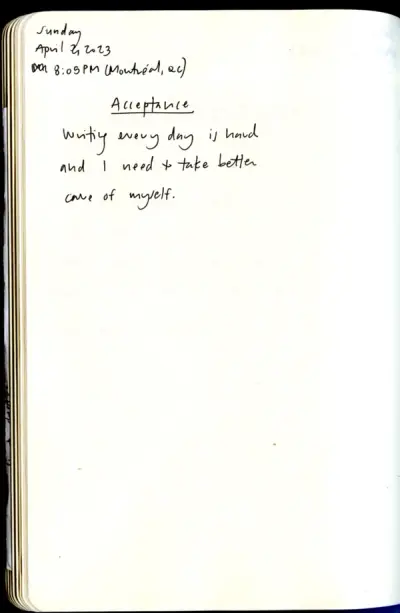 Sunday
April 2, 2023
8:05 PM (Montréal, QC)
Acceptance
Writing every day is hard
and I need to take better
care of myself.